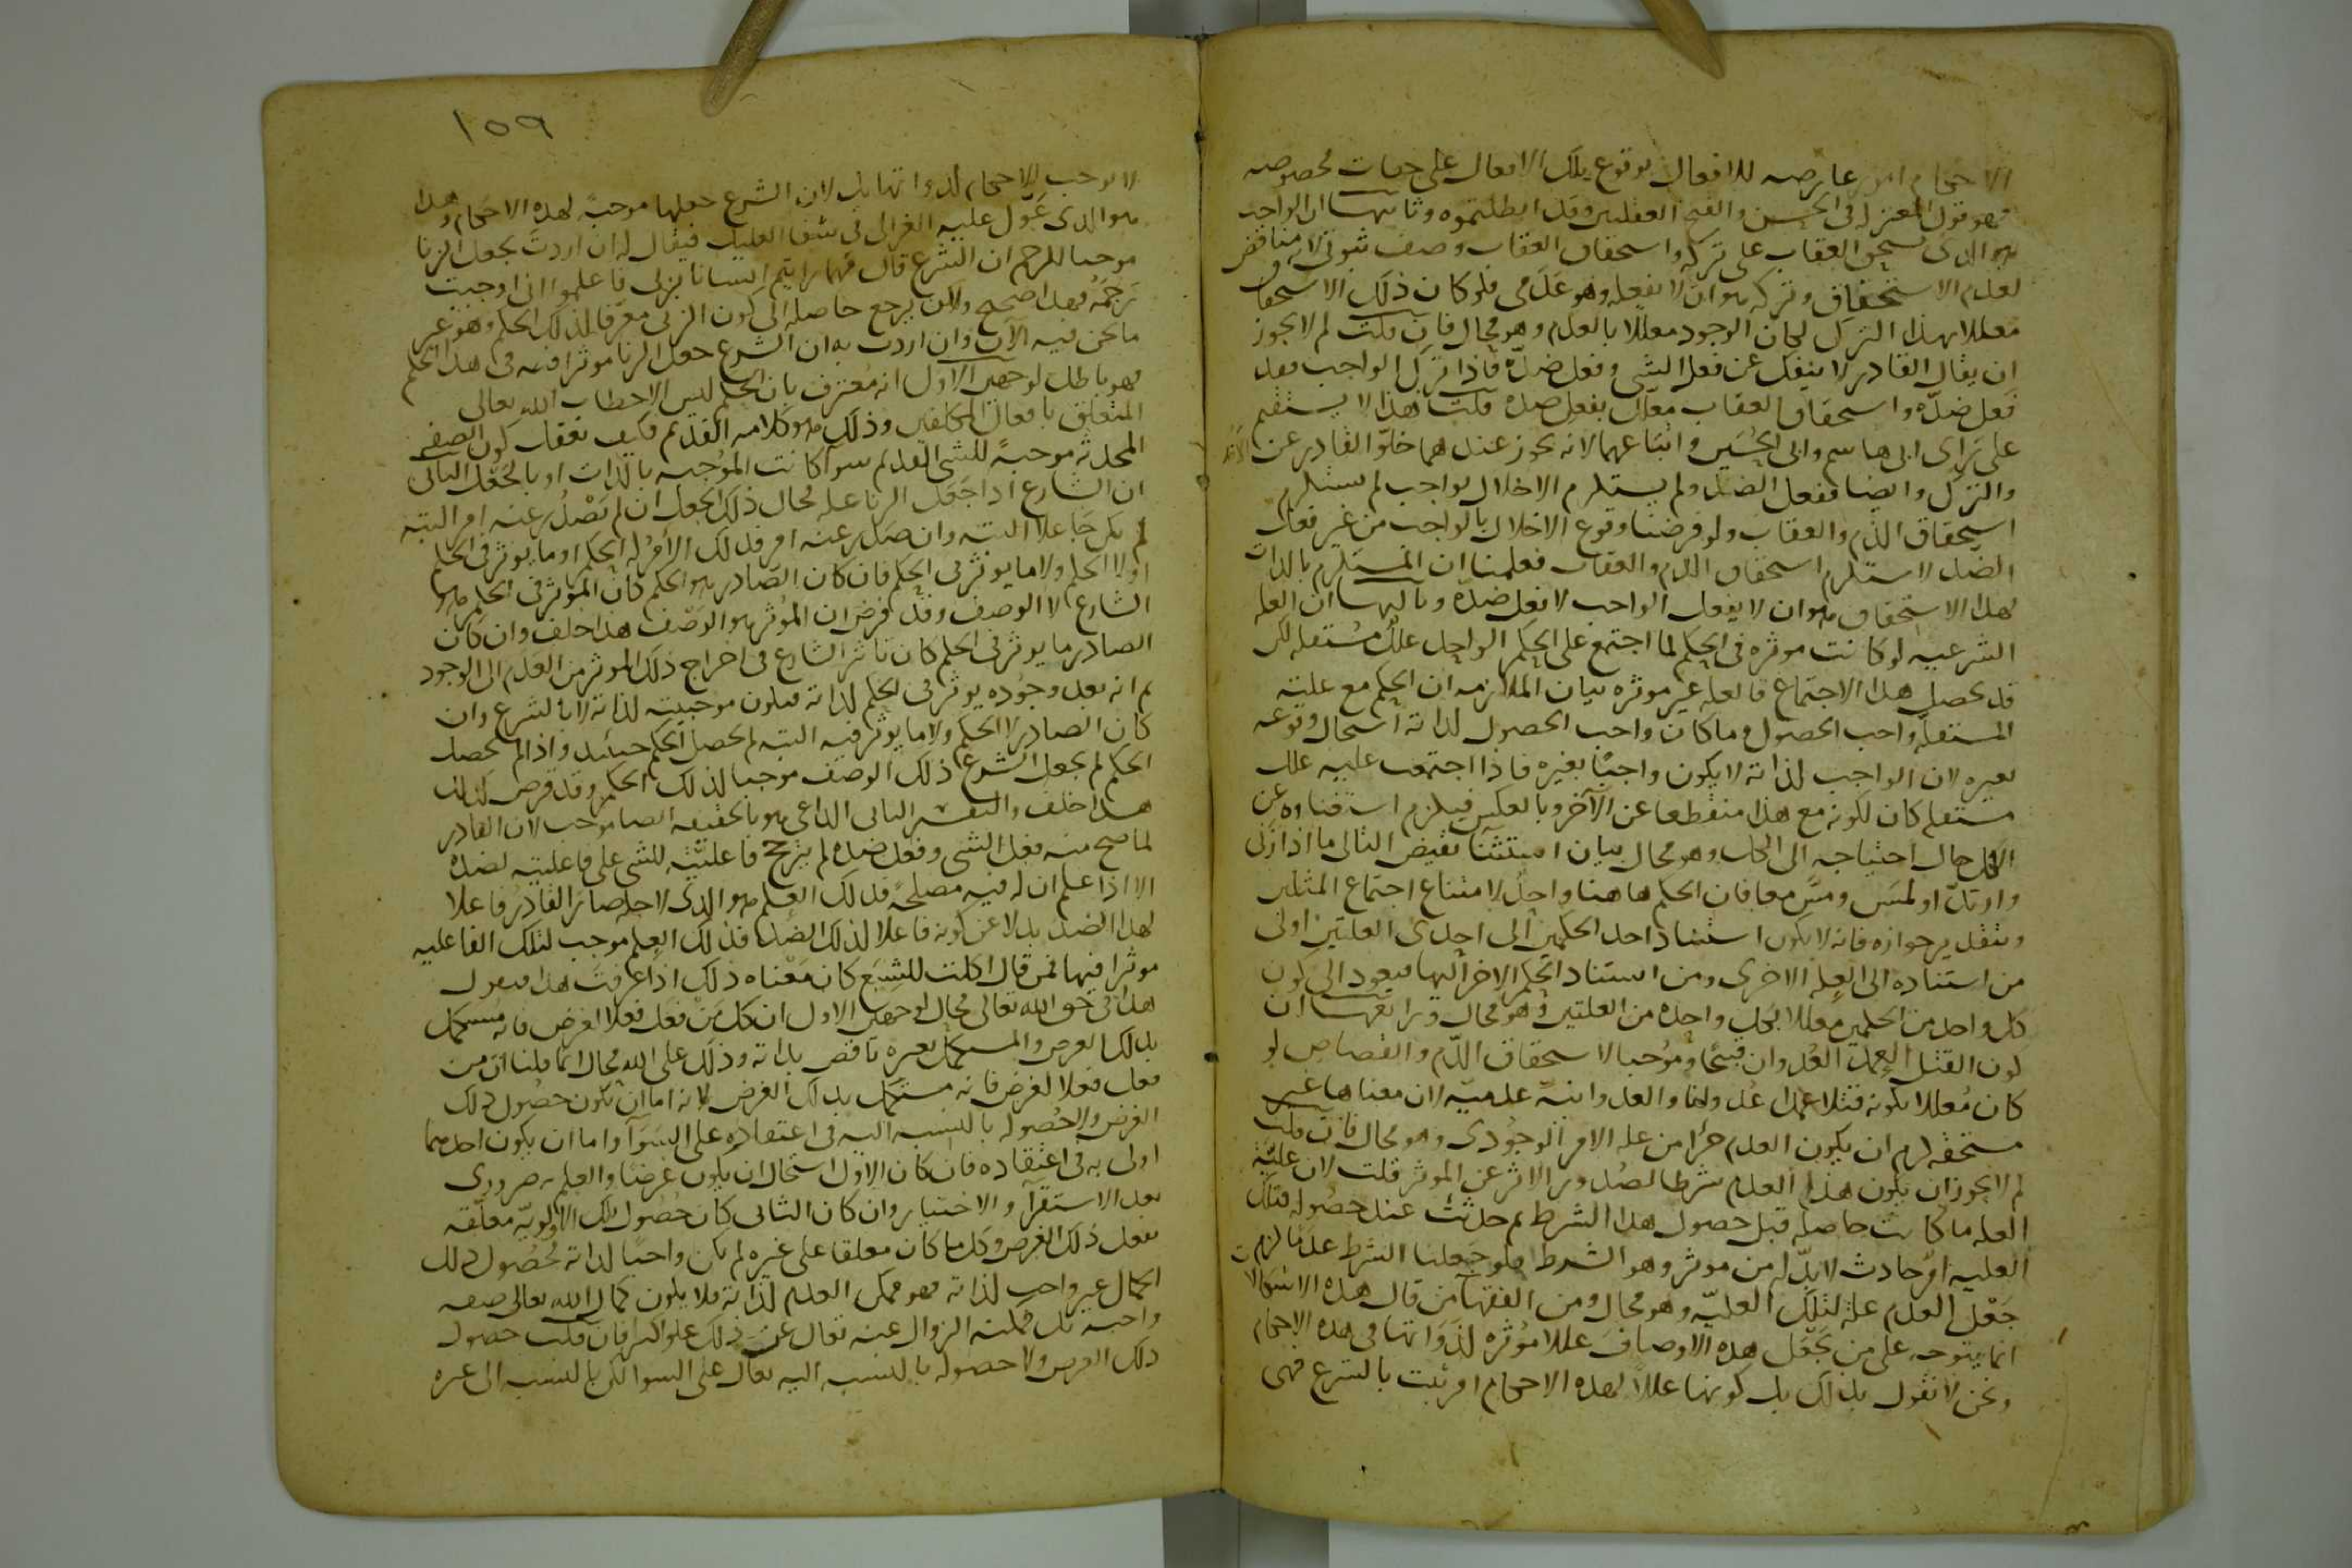 الاحكام امور عارضه للافعال بوقوع تلك الافعال على جهات مخصوصه
فهو قول المعتزله فى الحسن والقبح العقليين وقد ابطلتموه وثانيها ان الواجب
هو الذى يستحق العقاب على تركه واستحقاق العقاب وصف ثبوتى لانه مناقض
لعدم الاستحقاق وتركه هو ان لا يفعله وهو عدمى فلو كان ذلك الاستحقاق
معللا بهذا الترك لكان الوجود معللا بالعدم وهو محال فان قلت لم لا يجوز
ان يقال القادر لا ينفك عن فعل الشى وفعل ضده فاذا ترك الواجب فقد
فعل ضده واستحقاق العقاب معلل بفعل ضده قلت هذا لا يستقيم
على راى ابى هاشم وابى الحسين واتباعهما لانه يجوز عندهما خلو القادر عن الاخذ
والترك وايضا ففعل الضد لو لم يستلزم الاخلال بواجب لم يستلزم
استحقاق الذم والعقاب ولو فرضنا وقوع الاخلال بالواجب من غير فعل
الضد لاستلزم استحقاق الذم والعقاب فعلمنا ان المستلزم بالذات
لهذا الاستحقاق هو ان لا يفعل الواجب لا فعل ضده وثالثها ان العله
الشرعيه لو كانت موثره فى الحكم لما اجتمع على الحكم الواحد علل مستقله لكن
قد يحصل هذا الاجتماع فالعله غير موثره بيان الملازمه ان الحكم مع علته
المستقله واجب الحصول وما كان واجب الحصول لذاته استحال وقوعه
بغيره لان الواجب لذاته لا يكون واجبا بغيره فاذا اجتمعت عليه علل
مستقله كان لكونه مع هذا منقطعا عن الآخر وبالعكس فيلزم استغناوه عن
الكل حال احتياجه الى الكل وهو محال بيان استثنا نقيض التالى ما اذا زنى
وارتد او لمس ومس معا فان الحكم هاهنا واحد لامتناع اجتماع المثلين
وبتقدير جوازه فانه لا يكون استناد احد الحكمين الى احدى العلتين اولى
من استناده الى العله الاخرى ومن استناد الحكم الاخر اليها فيعود الى كون
كل واحد من الحكمين معللا بكل واحده من العلتين وهو محال ورابعها ان
كون القتل العمد العدوان قبيحا وموجبا لاستحقاق الذم والقصاص لو
كان معللا بكونه قتلا عمدا عدوانا والعدوانية عدميه لان معناها غير
مستحقه لزم ان يكون العدم جزا من عله الامر الوجودى وهو محال فان قلت
لم لا يجوز ان يكون هذا العدم شرطا لصدور الاثر عن الموثر قلت لان علية
العله ما كانت حاصله قبل حصول هذا الشرط ثم حدثت عند حصوله فتلك
العليه امر حادث لا بد له من موثر وهو الشرط فلو جعلنا الشرط عدما لزم
جعل العدم علة لتلك العليه وهو محال ومن الفقها من قال هذه الاشكالات
انما يتوجه على من يجعل هذه الاوصاف عللا موثره لذواتها فى هذه الاحكام
ونحن لا نقول بذلك بل كونها عللا لهذه الاحكام امر ثبت بالشرع فهى
١٥٩
لا توجب الاحكام لذواتها بل لان الشرع جعلها موجبة لهذه الاحكام وهذا
هو الذى عول عليه الغزالى فى شفا العليل فيقال له ان اردت بجعل الزنا
موجبا للرجم ان الشرع قال مهما رايتم انسانا يزنى فاعلموا انى اوجبت
رجمه فهذا صحيح ولكن يرجع حاصله الى كون الزنى معرفا لذلك الحكم وهو غير
ما نحن فيه الآن وان اردت به ان الشرع جعل الزنا موثرا فيه فى هذا الحكم
فهو باطل لوجهين الاول انه معترف بان الحكم ليس الا خطاب الله تعالى
المتعلق بافعال المكلفين وذلك هو كلامه القديم فكيف تعقل كون الصفه
المحدثه موجبة للشى القديم سوآ كانت الموجبه بالذات او بالجعل الثانى
ان الشارع اذا جعل الزنا عله فحال ذلك الجعل ان لم يصدر عنه امر البته
لم يكن جاعلا البته وان صدر عنه امر فذلك الامر اما الحكم او ما يوثر فى الحكم
او لا الحكم ولا ما يوثر فى الحكم فان كان الصادر هو الحكم كان الموثر فى الحكم هو
الشارع لا الوصف وقد فرض ان الموثر هو الوصف هذا خلف وان كان
الصادر ما يوثر فى الحكم كان تاثير الشارع فى اخراج ذلك الموثر من العدم الى الوجود
ثم انه بعد وجوده يوثر فى الحكم لذاته فيكون موجبيته لذاته لا بالشرع وان
كان الصادر لا الحكم ولا ما يوثر فيه البته لم يحصل الحكم حينئذ واذا لم يحصل
الحكم لم يجعل الشرع ذلك الوصف موجبا لذلك الحكم وقد فرض كذلك
هذا خلف والتفسير الثانى الداعى وهو بالحقيقه ايضا موجب لان القادر
لما صح منه فعل الشى وفعل ضده لم يترجح فاعليته للشى على فاعليته لضده
الا اذا علم ان له فيه مصلحة فذلك العلم هو الذى لاجله صار القادر فاعلا
لهذا الضد بدلا عن كونه فاعلا لذلك الضد فذلك العلم موجب لتلك الفاعليه
موثرا فيها فمن قال اكلت للشبع كان معناه ذلك اذا عرفت هذا فنقول
هذا فى حق الله تعالى محال لوجهين الاول ان كل من فعل فعلا لغرض فانه مستكمل
بذلك الغرض والمستكمل بغيره ناقص بذاته وذلك على الله محال انما قلنا ان من
فعل فعلا لغرض فانه مستكمل بذلك الغرض لانه اما ان يكون حصول ذلك
الغرض ولا حصوله بالنسبه اليه فى اعتقاده على السوآ واما ان يكون احدهما
اولى به فى اعتقاده فان كان الاول استحال ان يكون غرضا والعلم به ضرورى
بعد الاستقرآ والاختبار وان كان الثانى كان حصول تلك الاولويه معلقه
بفعل ذلك الغرض وكل ما كان معلقا على غيره لم يكن واجبا لذاته فحصول ذلك
الكمال غير واجب لذاته فهو ممكن العدم لذاته فلا يكون كمال الله تعالى صفه
واجبه بل ممكنه الزوال عنه تعالى عن ذلك علوا كبيرا فان قلت حصول
ذلك الغرض ولا حصوله بالنسبه اليه تعالى على السوا لكن بالنسبه الى غيره